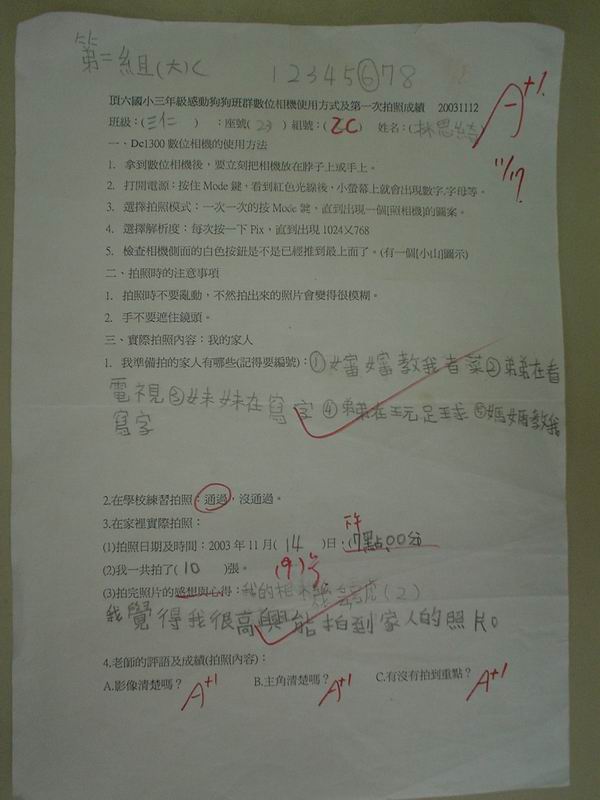 第二組(大)C 1 2 3 4 5 ⑥ 7 8
頂六國小三年級感動狗狗班群數位相機使用方式及第一次拍照成績 20031112
A+1
班級:(三仁) :座號(23) 組號:(2C) 姓名:(林思綺)
11/17
一、Dc1300 數位相機的使用方法
1. 拿到數位相機後,要立刻把相機放在脖子上或手上。
2. 打開電源:按住 Mode 鍵,看到紅色光線後,小螢幕上就會出現數字.字母等。
3. 選擇拍照模式:一次一次的按 Mode 鍵,直到出現一個[照相機]的圖案。
4. 選擇解析度:每次按一下 Pix,直到出現 1024X768
5. 檢查相機側面的白色按鈕是不是已經推到最上面了。(有一個[小山]圖示)
二、拍照時的注意事項
1. 拍照時不要亂動,不然拍出來的照片會變得很模糊。
2. 手不要遮住鏡頭。
三、實際拍照內容:我的家人
1. 我準備拍的家人有哪些(記得要編號):①嬸嬸教我煮菜②弟弟在看
電視③妹妹在寫字④弟弟在玩足球⑤媽媽教我
寫字
2.在學校練習拍照:通過,沒通過。
3.在家裡實際拍照:
下午
(1)拍照日期及時間:2003 年 11 月(14)日,(7點00分
(2)我一共拍了(10)張。(9)
(3)拍完照片的感想與心得:我的相本(2)
我覺得我很高興能拍到家人的照片。
4.老師的評語及成績(拍照內容):
A.影像清楚嗎? A+1 B.主角清楚嗎? A+1 C.有沒有拍到重點? A+1